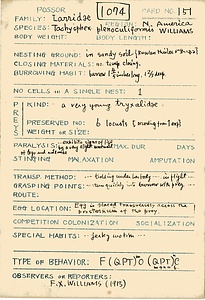 POSSOR
1074
CARD NO. 151
FAMILY: Larridae
REGION: N. America
SPECIES: Tachysphex plenoculiformis WILLIAMS
BODY WEIGHT: BODY LENGTH:
NESTING GROUND: in sandy soil
CLOSING MATERIALS: no temp. closing.
BURROWING HABIT: burrow
NO. CELLS IN A SINGLE NEST: 1
PREY
KIND: a very young tryxalidae
PRESERVED NO: 6 locusts
WEIGHT OR SIZE:
PARALYSIS: MAX. DUR DAYS
STINGING MALAXATION AMPUTATION
TRANSP. METHOD: holding under the body in flight
GRASPING POINTS: runs quickly into burrow with prey.
ROUTE:
EGG LOCATION: Egg is placed transversely across the prosternum of the prey.
COMPETITION COLONIZATION SOCIALIZATION
SPECIAL HABITS: jerky motion
TYPE OF BEHAVIOR:
OBSERVERS OR REPORTERS:
F.X. WILLIAMS (1913)